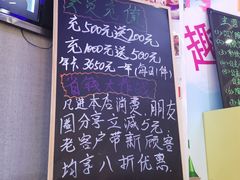 充500元送200元
充1000元送500元
年卡3650元一年(每日1件)
凡进本店消费,朋友
圈分享立减5元
老客户带新顾客
均享八折优惠
趣